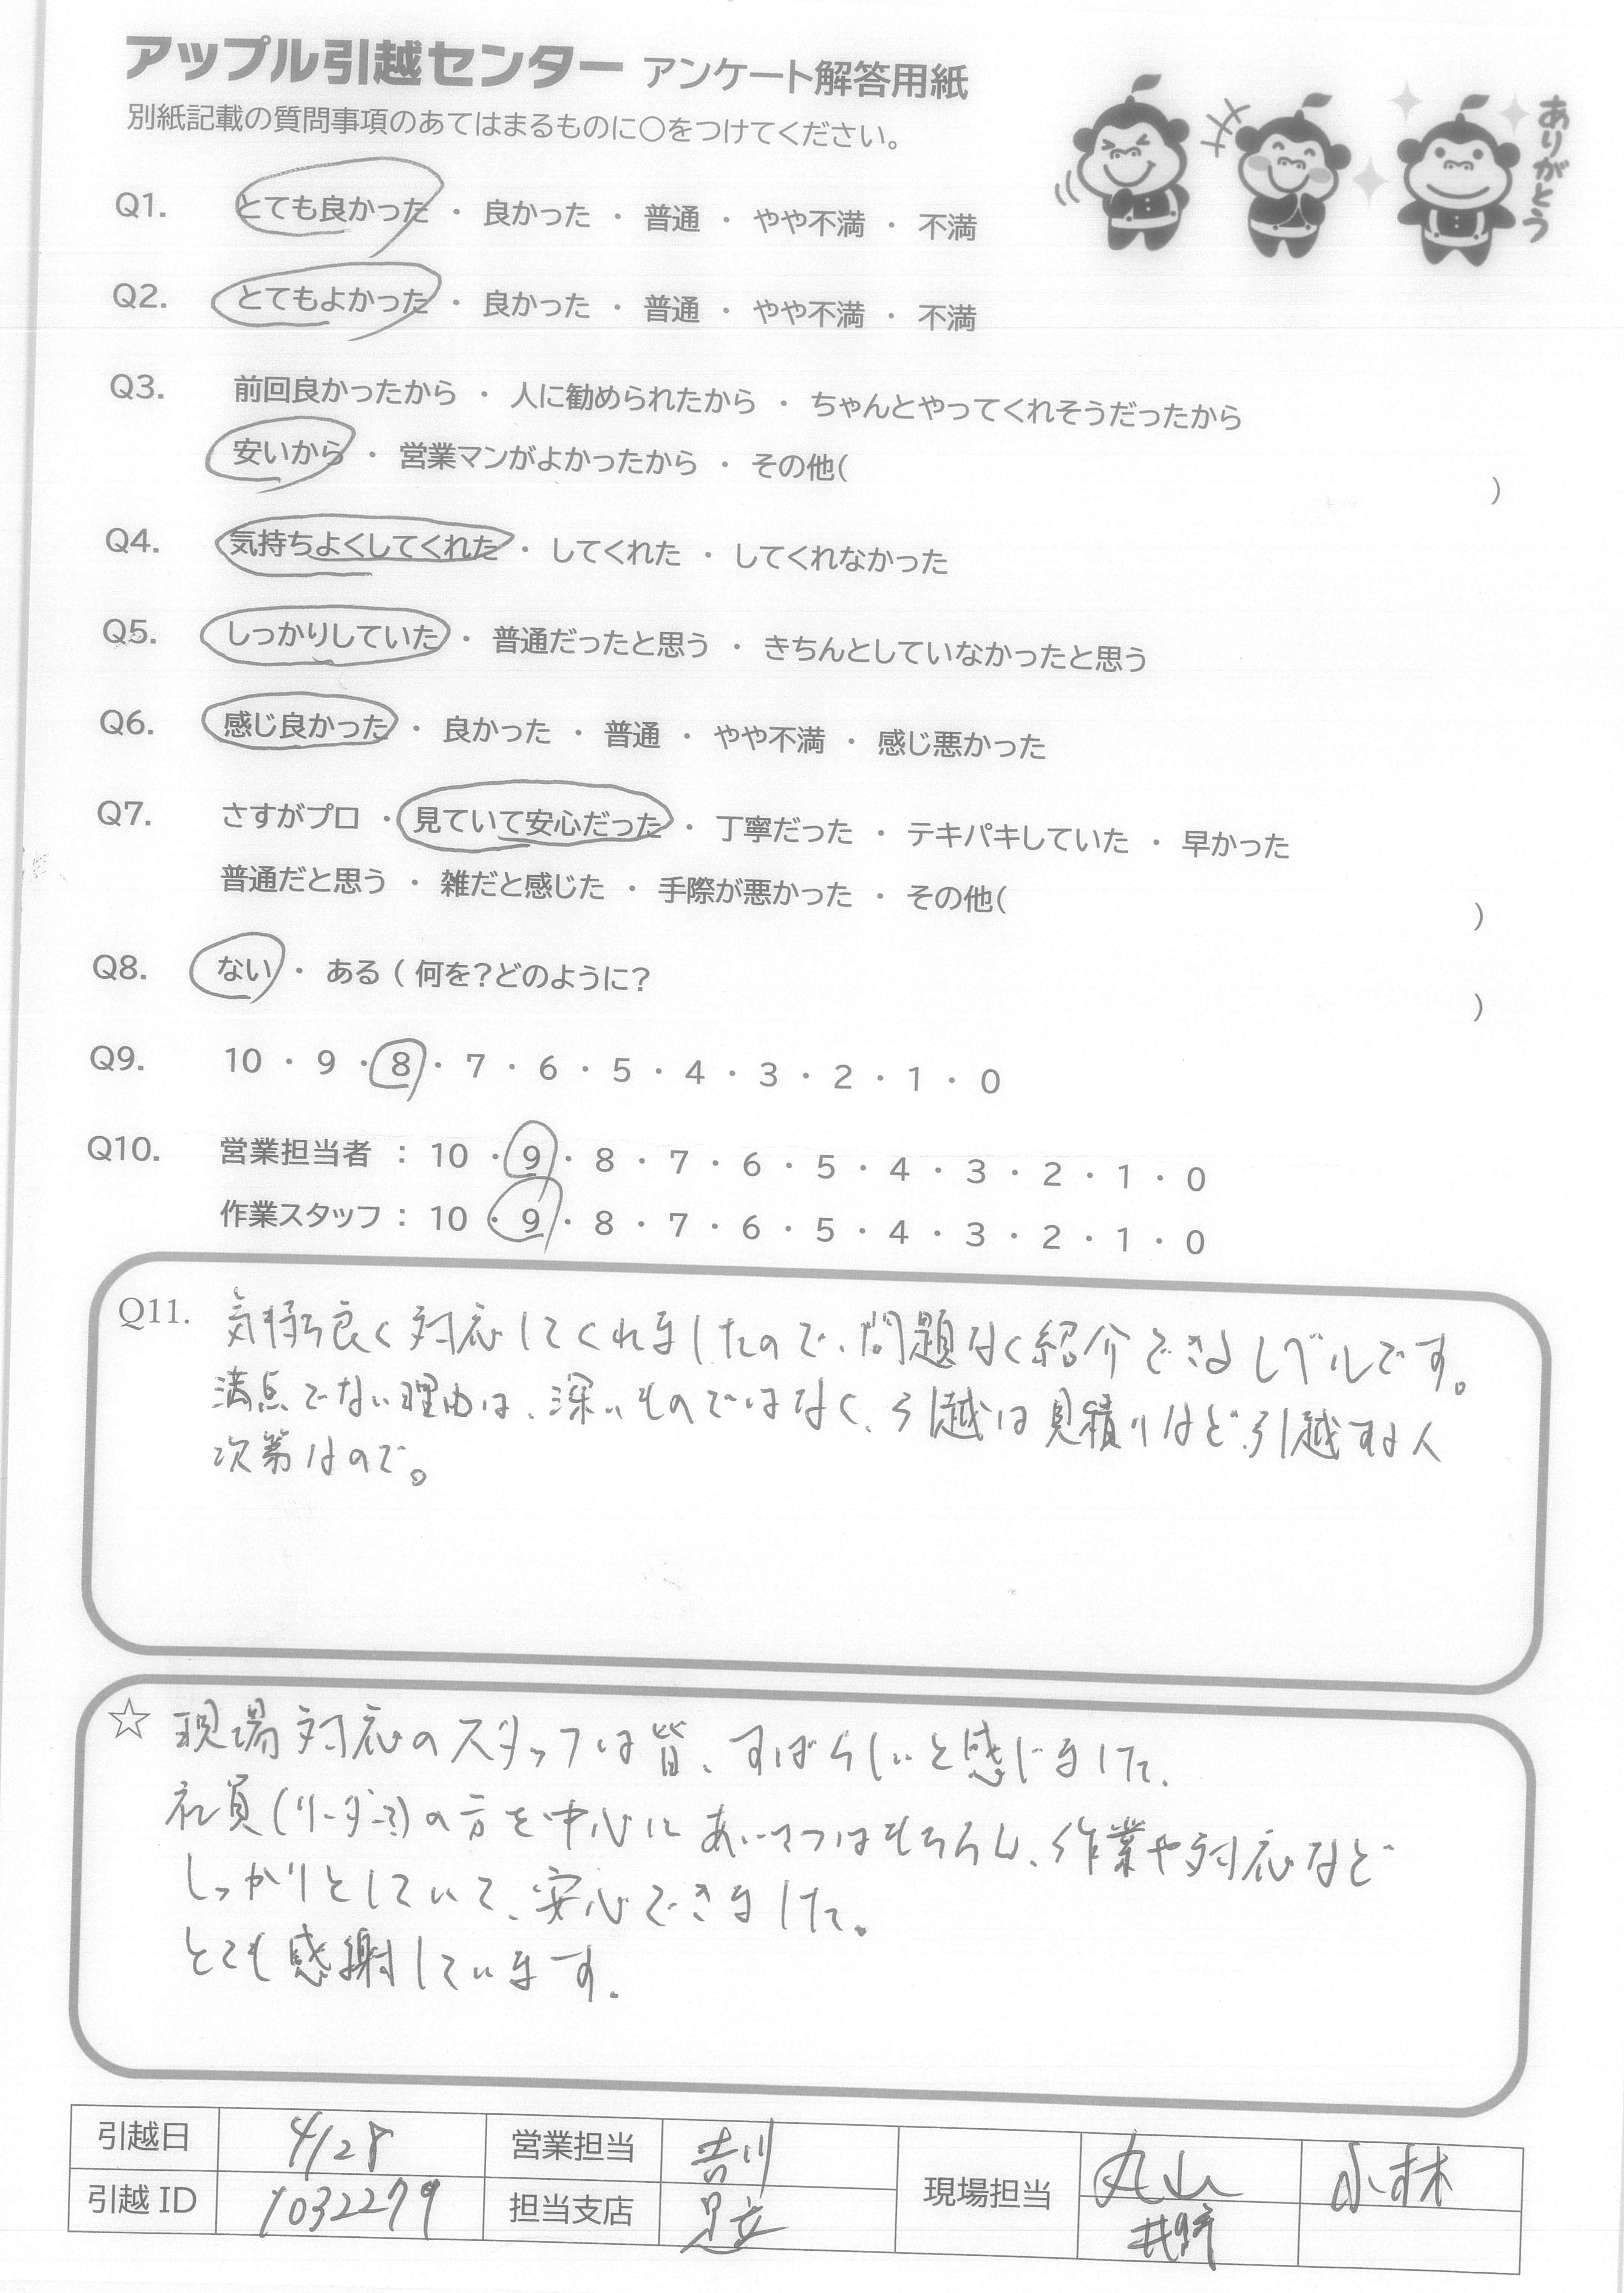 アップル引越センター アンケート解答用紙
別紙記載の質問事項のあてはまるものに〇をつけてください。
ありがとう
Q1. とても良かった ・ 良かった ・ 普通 ・ やや不満 ・ 不満
Q2. とてもよかった ・ 良かった ・ 普通 ・ やや不満 ・ 不満
Q3. 前回良かったから ・ 人に勧められたから ・ ちゃんとやってくれそうだったから
安いから ・ 営業マンがよかったから ・ その他( )
Q4. 気持ちよくしてくれた ・ してくれた ・ してくれなかった
Q5. しっかりしていた ・ 普通だったと思う ・ きちんとしていなかったと思う
Q6. 感じ良かった ・ 良かった ・ 普通 ・ やや不満 ・ 感じ悪かった
Q7. さすがプロ ・ 見ていて安心だった ・ 丁寧だった ・ テキパキしていた ・ 早かった
普通だと思う ・ 雑だと感じた ・ 手際が悪かった ・ その他( )
Q8. ない ・ ある ( 何を?どのように? )
Q9. 10 ・ 9 ・ 8 ・ 7 ・ 6 ・ 5 ・ 4 ・ 3 ・ 2 ・ 1 ・ 0
Q10. 営業担当者 : 10 ・ 9 ・ 8 ・ 7 ・ 6 ・ 5 ・ 4 ・ 3 ・ 2 ・ 1 ・ 0
作業スタッフ : 10 ・ 9 ・ 8 ・ 7 ・ 6 ・ 5 ・ 4 ・ 3 ・ 2 ・ 1 ・ 0
Q11. 気持ち良く対応してくれましたので、問題なく紹介できるレベルです。
満点でない理由は、深いものではなく、引越は見積りなど、引越する人
次第なので。
☆ 現場対応のスタッフは皆、すばらしいと感じました。
社員(リーダー)の方を中心にあいさつはもちろん、作業や対応など
しっかりとしていて、安心できました。
とても感謝しています。
引越日 4/28 営業担当 吉川 現場担当 丸山 小林
引越 ID 1032279 担当支店 足立